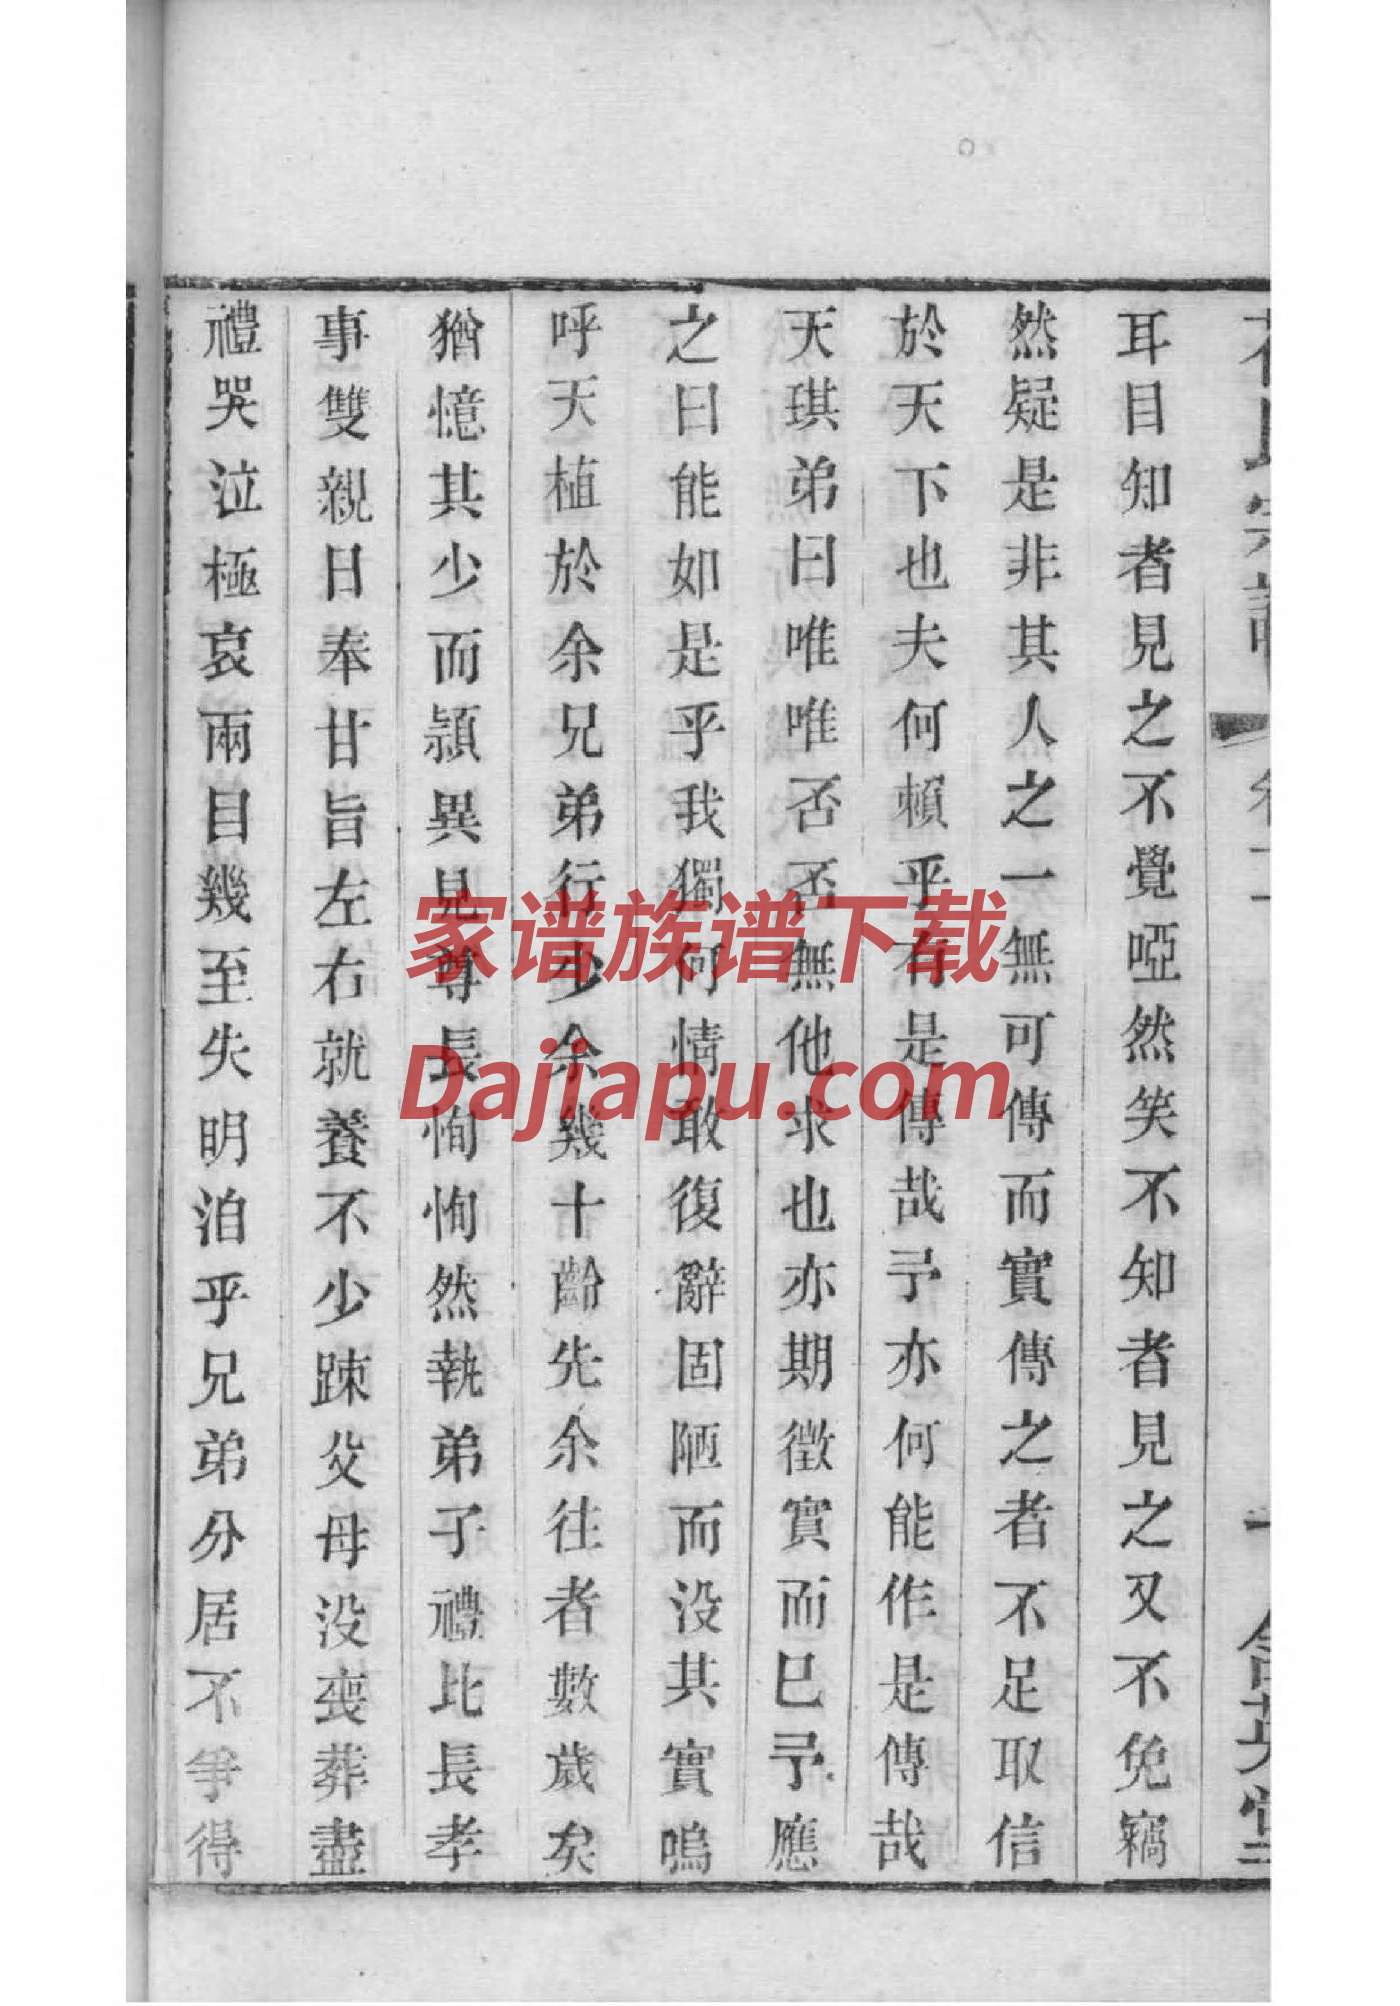 耳目知者見之不覺啞然笑不知者見之又不免竊
然疑是非其人之一無可傳而實傳之者不足取信
於天下也夫何賴乎有是傳哉予亦何能作是傳哉
天琪弟曰唯唯否否無他求也亦期徵實而已予應
之曰能如是乎我獨何情敢復辭固陋而没其實嗚
呼天植於余兄弟行少余幾十齡先余往者數歲矣
猶憶其少而頴異見尊長恂恂然執弟子禮比長孝
事雙親日奉甘旨左右就養不少踈父母没喪葬盡
禮哭泣極哀兩目幾至失明洎乎兄弟分居不爭得
家谱族谱下载
Dajiapu.com